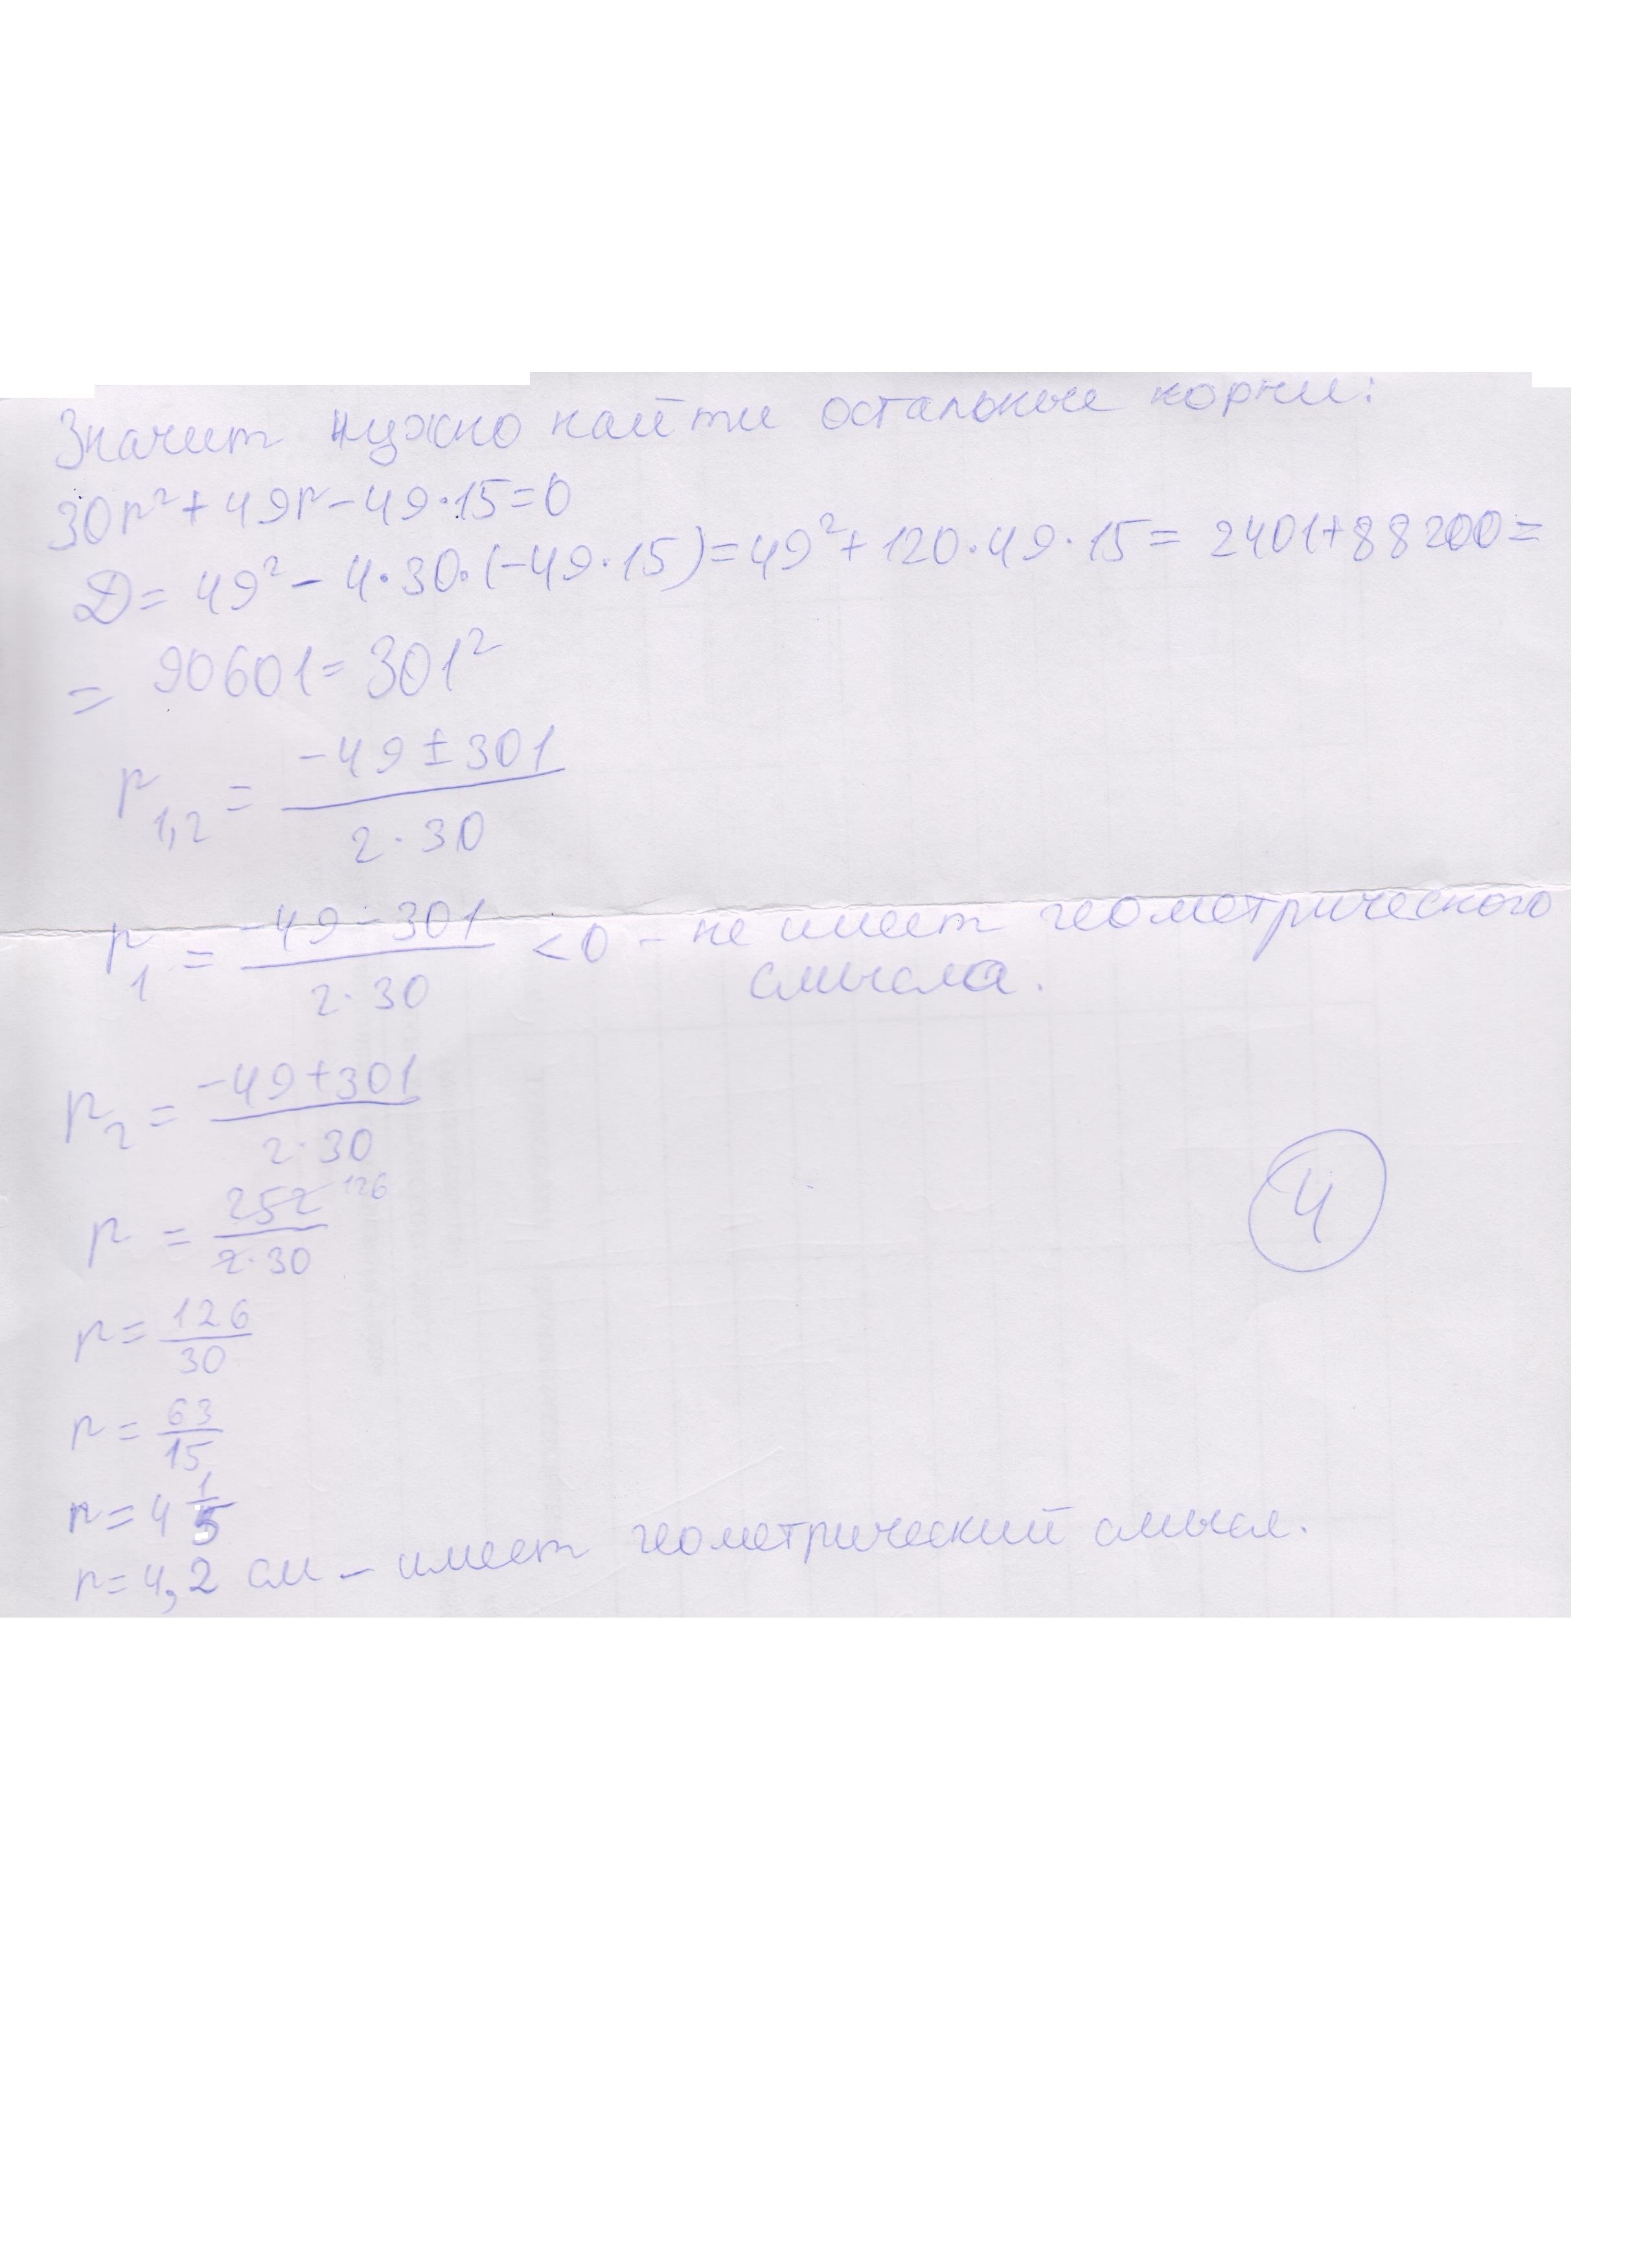 Значит нужно найти остальные корни:
30r²+49r-49·15=0
D=49²-4·30·(-49·15)=49²+120·49·15=2401+88200=
=90601=301²
r₁,₂=(-49±301)/(2·30)
r₁=(-49-301)/(2·30)<0 - не имеет геометрического
смысла.
r₂=(-49+301)/(2·30)
r=252/(2·30) 126
4
r=126/30
r=63/15
r=4 1/5
r=4,2 см - имеет геометрический смысл.